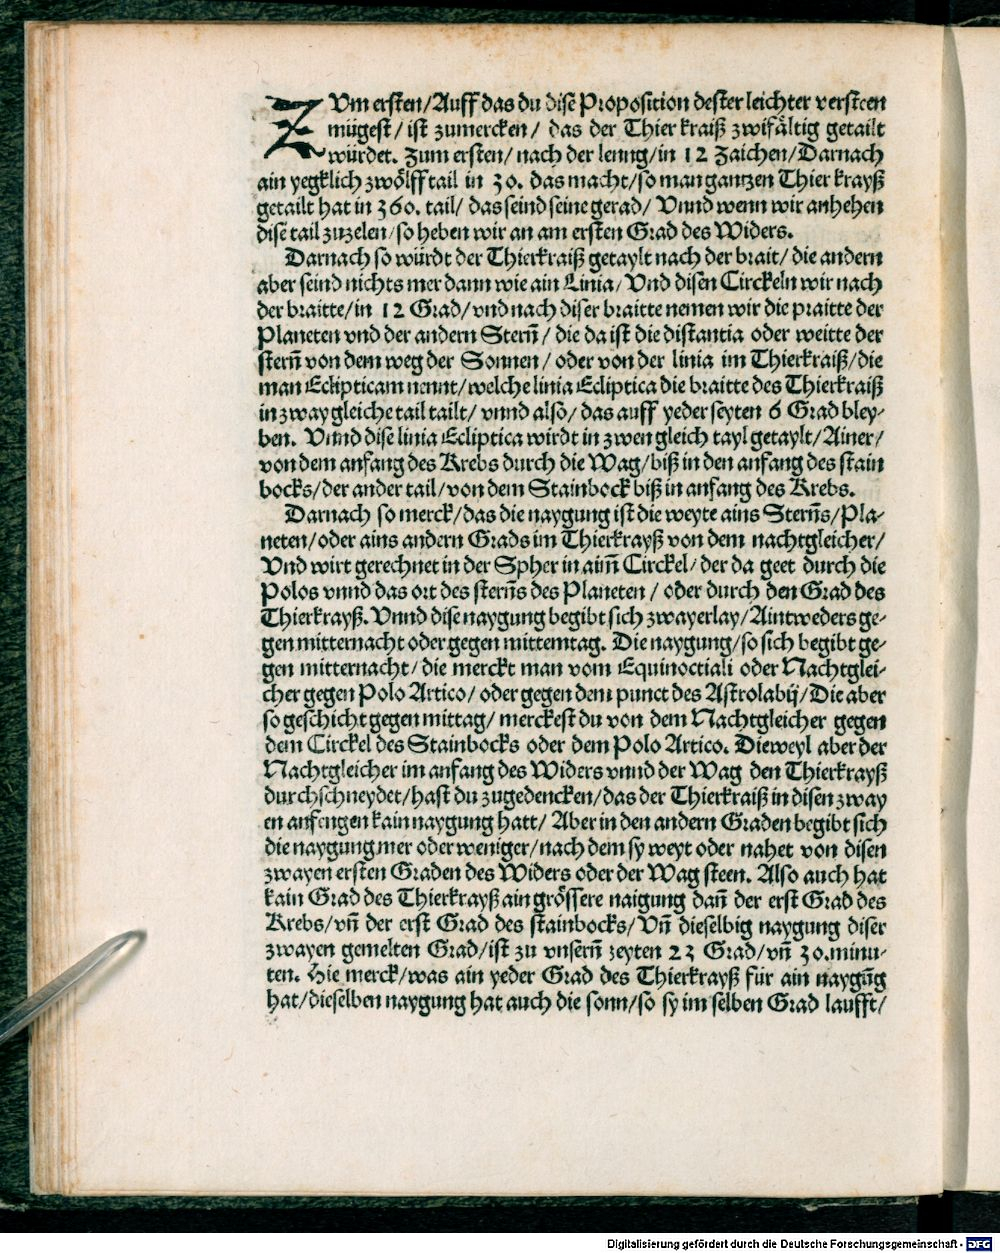 ZUm ersten/Auff das du dise Proposition dester leichter versteen
mügest/ ist zumercken/ das der Thier kraiß zwifältig getailt
würdet. Zum ersten/ nach der lenng/in 12 Zaichen/Darnach
ain yegklich zwölfftail in 30. das macht/so man gantzen Thier krayß
getailt hat in 360. tail/ das seind seine gerad/ Vnnd wenn wir anhehen
dise tail zuzelen/so heben wir an am ersten Grad des Widers.
Darnach so würdt der Thierkraiß getaylt nach der brait/ die andern
aber seind nichts mer dann wie ain Linia/ Vnd disen Circkeln wir nach
der braitte/in 12 Grad/vnd nach diser braitte nemen wir die praitte der
Planeten vnd der andern Stern̄/ die da ist die distantia oder weitte der
stern̄ von dem weg der Sonnen/ oder von der linia im Thierkraiß/die
man Eclipticam nennt/welche linia Ecliptica die braitte des Thierkraiß
in zway gleiche tail tailt/ vnnd also/ das auff yeder seyten 6 Grad bley-
ben. Vnnd dise linia Ecliptica wirdt in zwen gleich tayl getaylt/Ainer/
von dem anfang des Krebs durch die Wag/biß in den anfang des stain
bocks/der ander tail/von dem Stainbock biß in anfang des Krebs.
Darnach so merck/das die naygung ist die weyte ains Stern̄s/Pla-
neten/oder ains andern Grads im Thierkrayß von dem nachtgleicher/
Vnd wirt gerechnet in der Spher in ain̄ Circkel/ der da geet durch die
Polos vnnd das ort des stern̄s des Planeten/ oder durch den Grad des
Thierkrayß. Vnnd dise naygung begibt sich zwayerlay/Aintweders ge-
gen mitternacht oder gegen mittemtag. Die naygung/so sich begibt ge-
gen mitternacht/ die merckt man vom Equinoctiali oder Nachtglei-
cher gegen Polo Artico/ oder gegen dem punct des Astrolabij/ Die aber
so geschicht gegen mittag/ merckest du von dem Nachtgleicher gegen
dem Circkel des Stainbocks oder dem Polo Artico. Dieweyl aber der
Nachtgleicher im anfang des Widers vnnd der Wag den Thierkrayß
durchschneydet/hast du zugedencken/das der Thierkraiß in disen zway
en anfengen kain naygung hatt/ Aber in den andern Graden begibt sich
die naygung mer oder weniger/nach dem sy weyt oder nahet von disen
zwayen ersten Graden des Widers oder der Wag steen. Also auch hat
kain Grad des Thierkrayß ain grössere naigung dan̄ der erst Grad des
Krebs/vn̄ der erst Grad des stainbocks/Vn̄ dieselbig naygung diser
zwayen gemelten Grad/ist zu vnsern̄ zeyten 23 Grad/vn̄ 30.minu-
ten. Hie merck/was ain yeder Grad des Thierkrayß für ain naygūg
hat/dieselben naygung hat auch die sonn/so sy im selben Grad laufft/
Digitalisierung gefördert durch die Deutsche Forschungsgemeinschaft - DFG